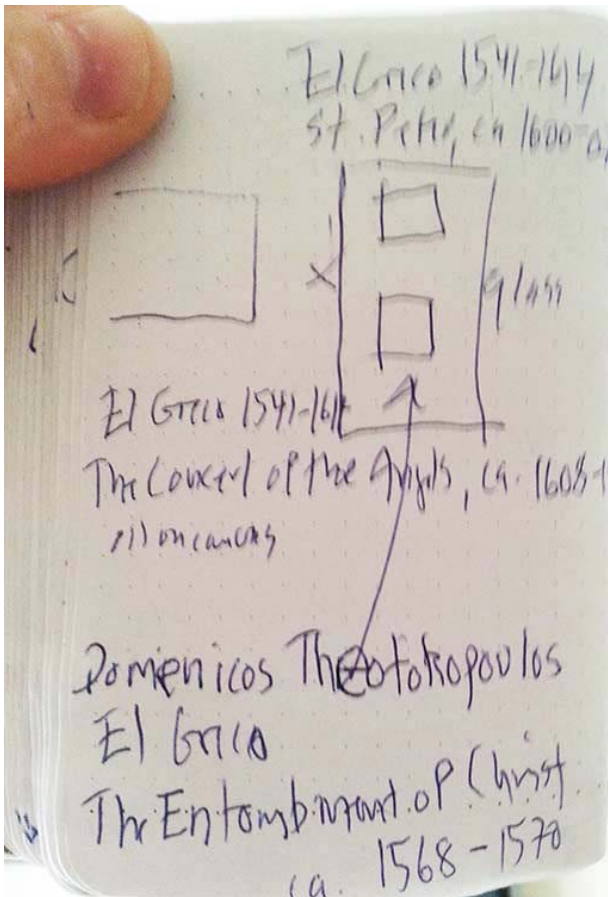 El Greco 1541-164
St. Peter, ca 1600-0
glass
El Greco 1541-161
The Concert of the Angels, ca. 1608-1
oil on canvas
Domenicos Theotokopoulos
El Greco
The Entombment of Christ
ca. 1568-1570